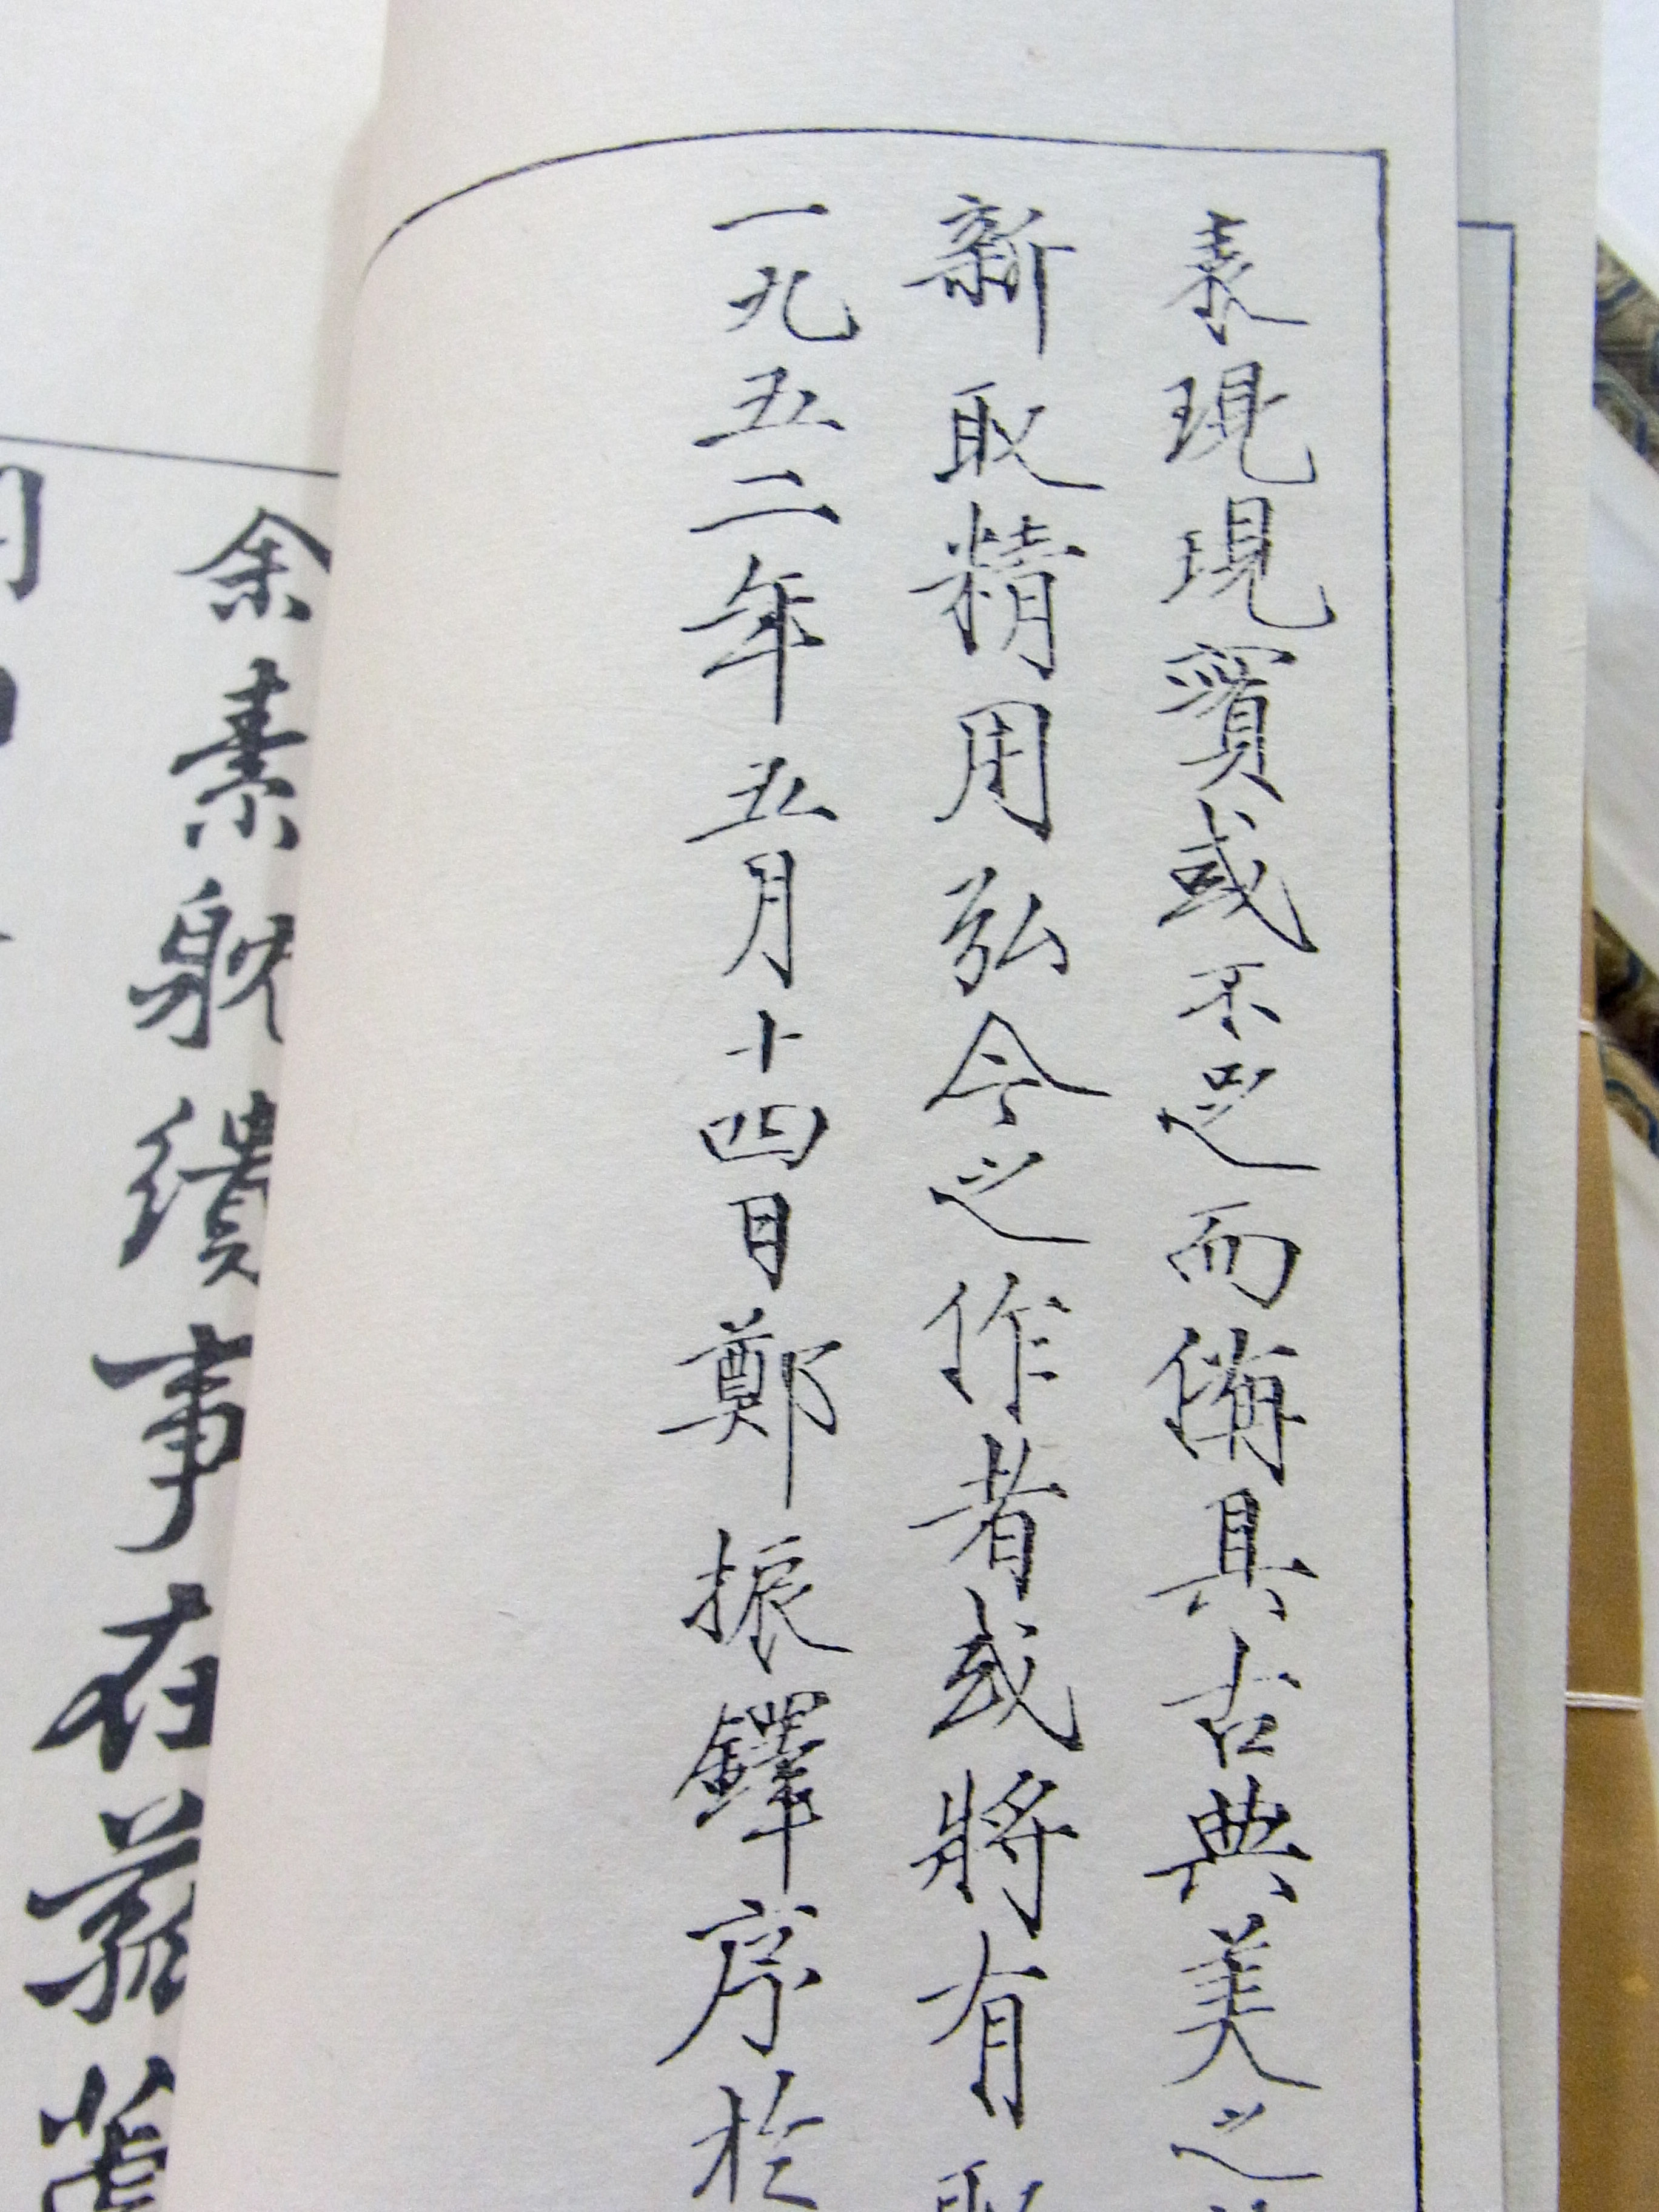 表現現實或不足而備具古典美之
新取精用弘今之作者或將有
一九五二年五月十四日鄭振鐸序於
余素躭繢事在蓉